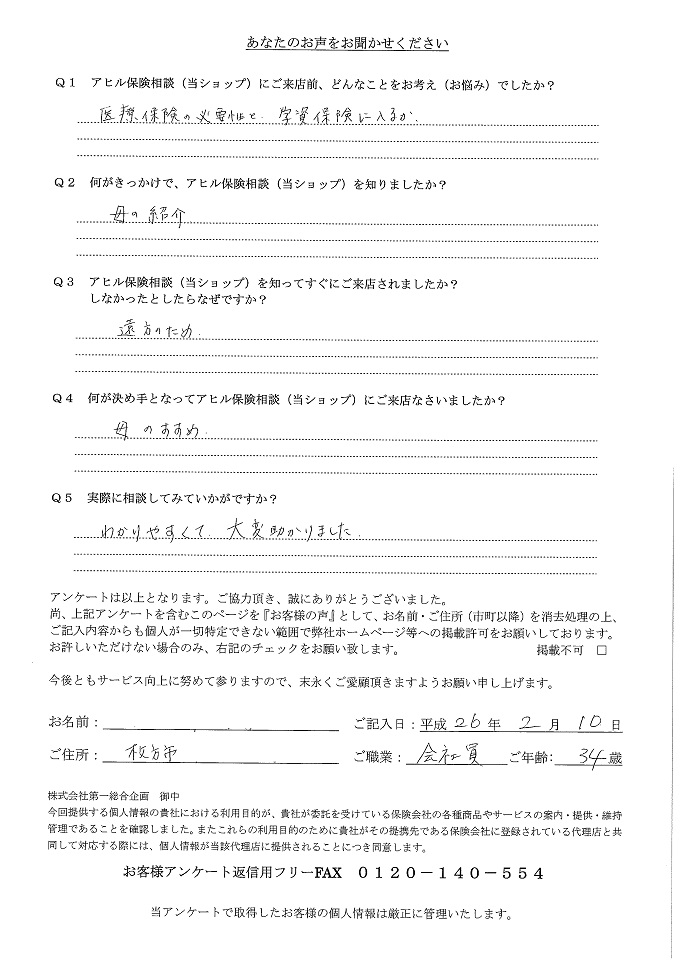 あなたのお声をお聞かせください
Q1 アヒル保険相談(当ショップ)にご来店前、どんなことをお考え(お悩み)でしたか?
医療保険の必要性と、学資保険に入るか、
Q2 何がきっかけで、アヒル保険相談(当ショップ)を知りましたか?
母の紹介
Q3 アヒル保険相談(当ショップ)を知ってすぐにご来店されましたか?
しなかったとしたらなぜですか?
遠方のため、
Q4 何が決め手となってアヒル保険相談(当ショップ)にご来店なさいましたか?
母のすすめ、
Q5 実際に相談してみていかがですか?
わかりやすくて、大変助かりました、
アンケートは以上となります。ご協力頂き、誠にありがとうございました。
尚、上記アンケートを含むこのページを『お客様の声』として、お名前・ご住所(市町以降)を消去処理の上、
ご記入内容からも個人が一切特定できない範囲で弊社ホームページ等への掲載許可をお願いしております。
お許しいただけない場合のみ、右記のチェックをお願い致します。 掲載不可 □
今後ともサービス向上に努めて参りますので、末永くご愛顧頂きますようお願い申し上げます。
お名前: ご記入日:平成 26 年 2 月 10 日
ご住所: 枚方市 ご職業: 会社員 ご年齢: 34 歳
株式会社第一総合企画 御中
今回提供する個人情報の貴社における利用目的が、貴社が委託を受けている保険会社の各種商品やサービスの案内・提供・維持
管理であることを確認しました。またこれらの利用目的のために貴社がその提携先である保険会社に登録されている代理店と共
同して対応する際には、個人情報が当該代理店に提供されることにつき同意します。
お客様アンケート返信用フリーFAX 0120-140-554
当アンケートで取得したお客様の個人情報は厳正に管理いたします。